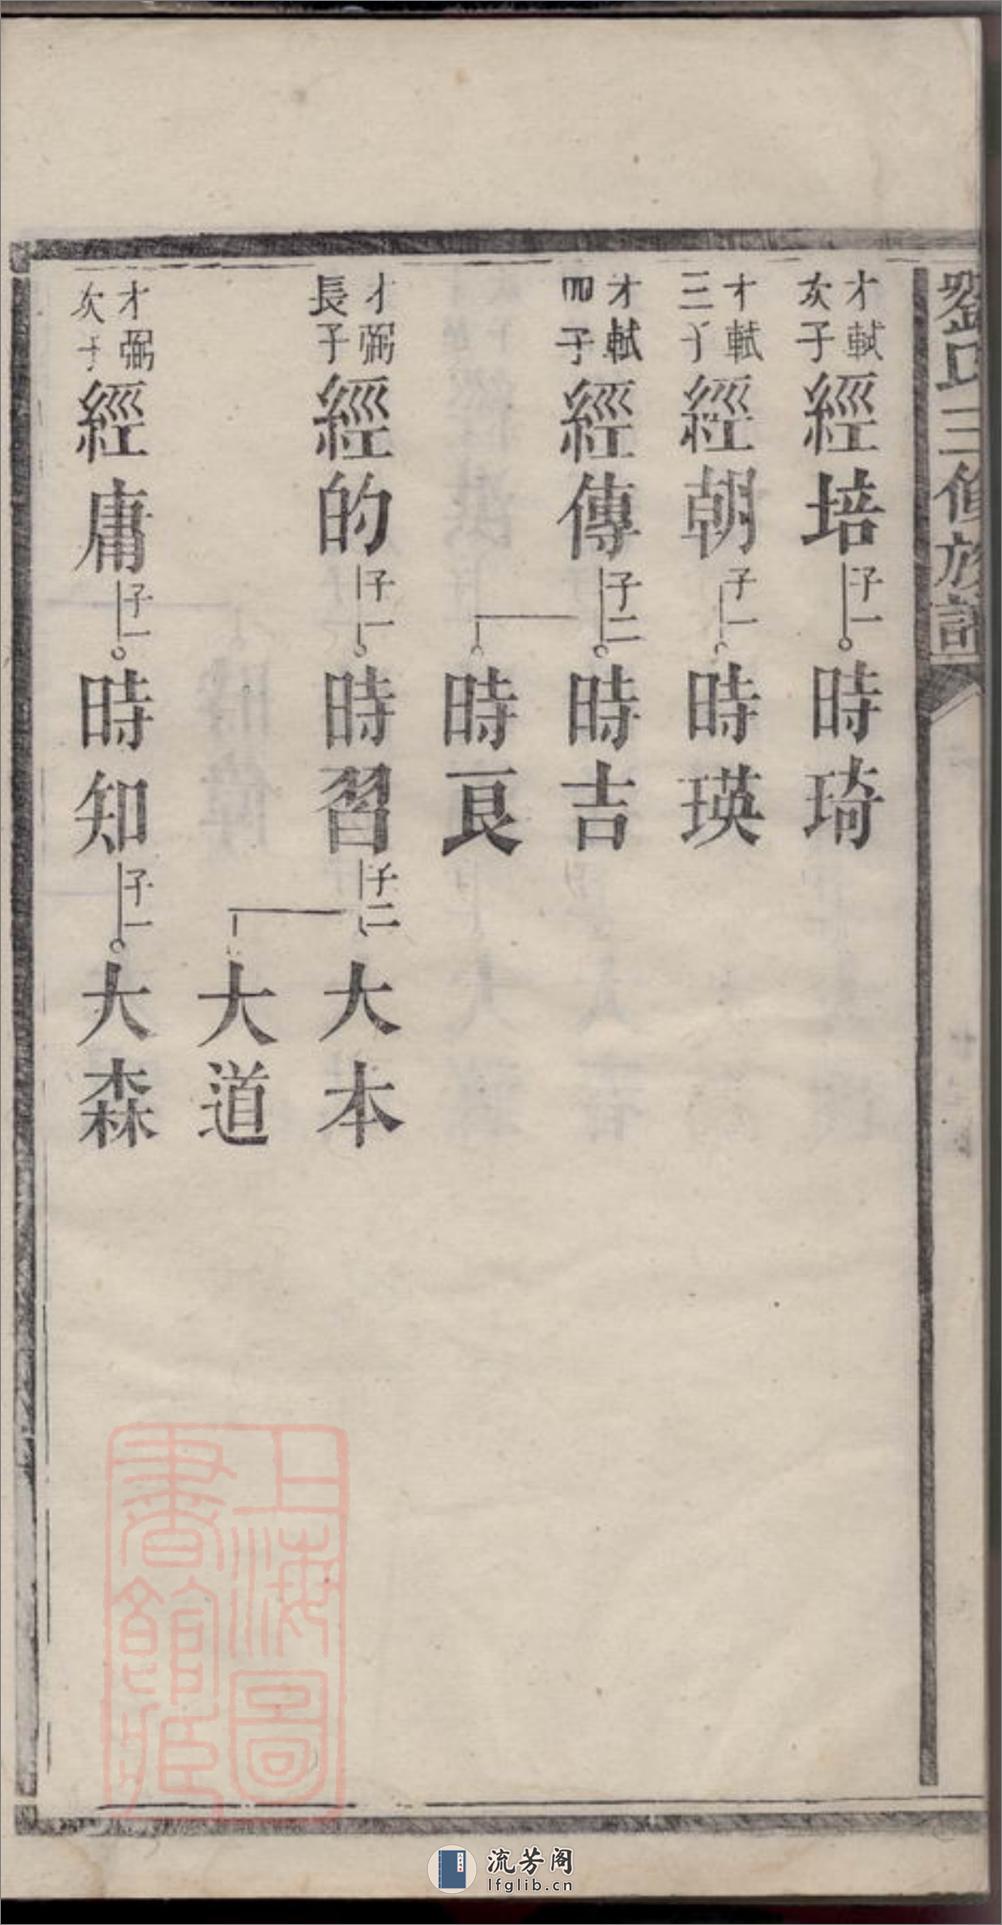 劉氏三修族譜
才軾
次子
經培
子一
時琦
才軾
三子
經朝
子一
時瑛
才軾
四子
經傳
子二
時吉
時良
才弼
長子
經的
子一
時習
子二
大本
大道
才弼
次子
經庸
子一
時知
子一
大森
上海圖
書館藏
流芳阁
lfglib.cn